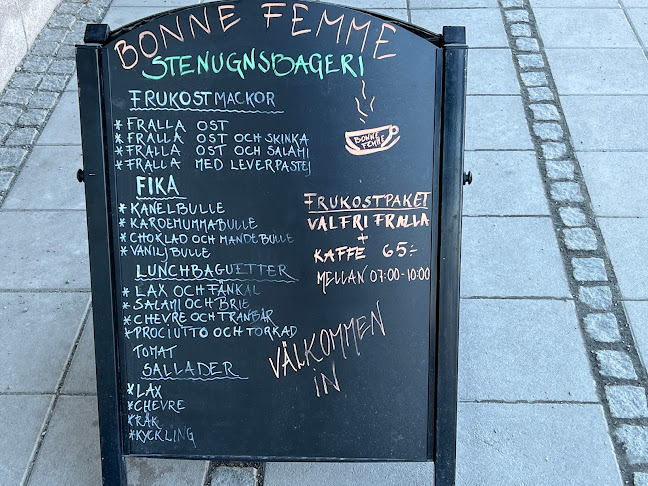 BONNE FEMME
STENUGNSBAGERI
FRUKOSTMACKOR
*FRALLA OST
*FRALLA OST OCH SKINKA
*FRALLA OST OCH SALAMI
*FRALLA MED LEVERPASTEJ
FIKA
*KANELBULLE
*KARDEMUMMABULLE
*CHOKLAD OCH MANDELBULLE
*VANILJBULLE
LUNCHBAGUETTER
*LAX OCH FÄNKAL
*SALAMI OCH BRIE
*CHEVRE OCH TRANBÄR
*PROCIUTTO OCH TORKAD
TOMAT
SALLADER
*LAX
*CHEVRE
*RÄK
*KYCKLING
BONNE
FEMME
FRUKOSTPAKET
VALFRI FRALLA
+
KAFFE 65:-
MELLAN 07:00-10:00
VÄLKOMMEN
IN